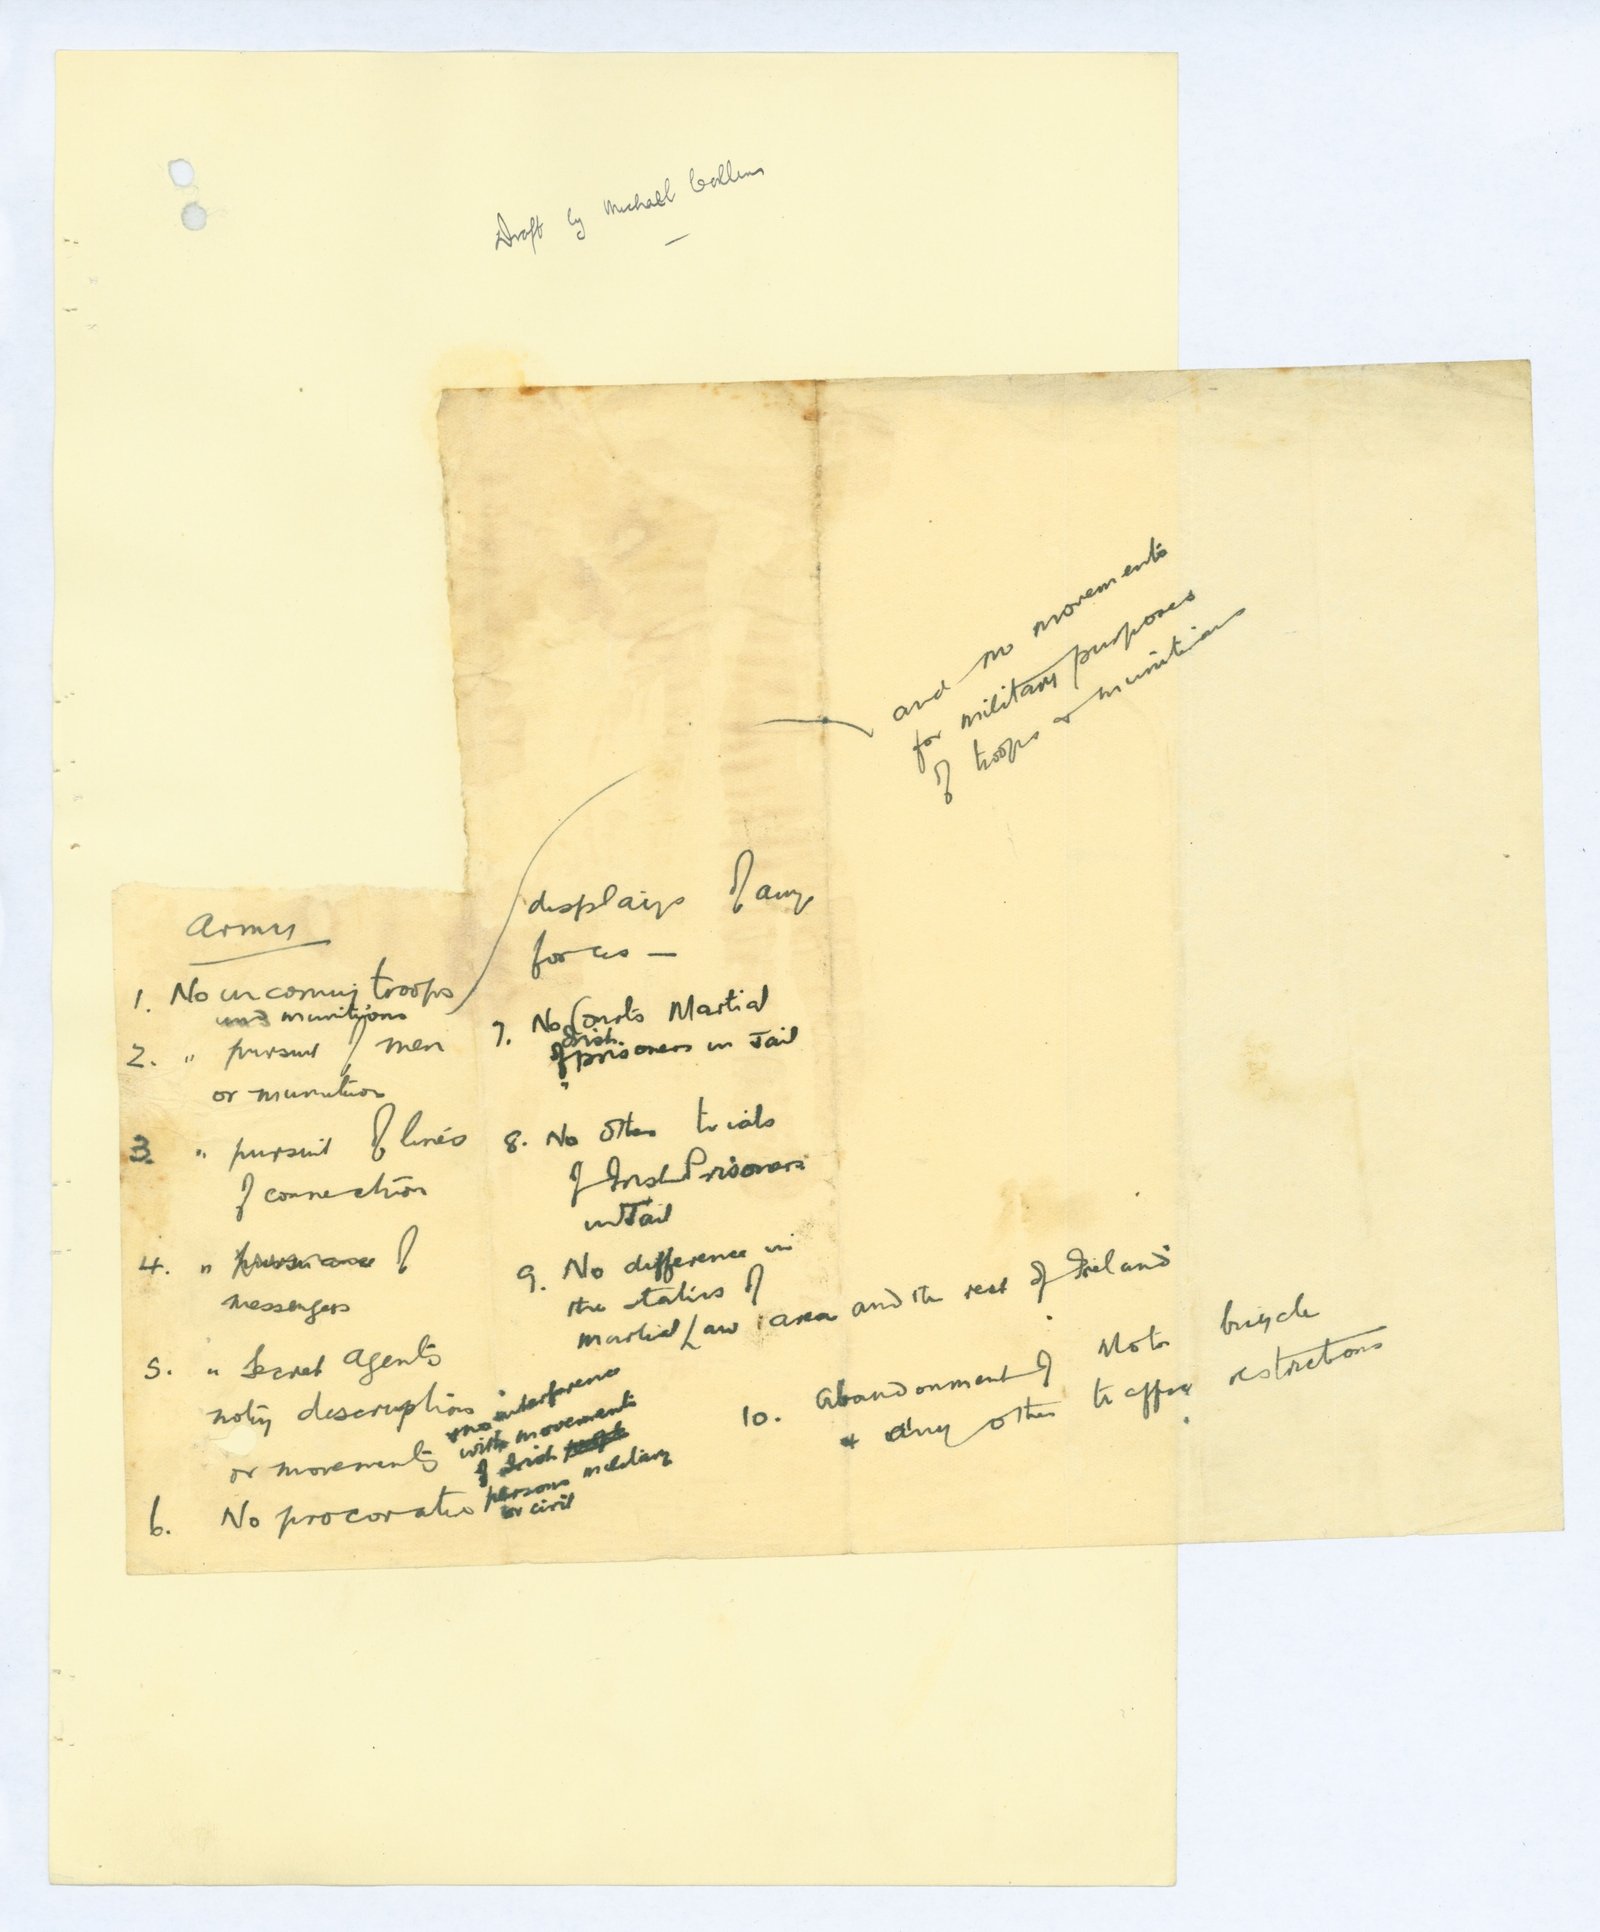 Draft by Michael Collins
Army
1. No incoming troops
and munitions
and no movements
for military purposes
of troops or munitions
2. " pursuit of men
or munition
3. " pursuit of lines
of connection
4. " pursuance of
messengers
5. " Secret Agents
noting descriptions
or movements
& no interference
with movements
of Irish people
persons military
or civil
6. No procovative
displays of any
forces —
7. No Courts Martial
of Irish
prisoners in Jail
8. No other trials
of Irish Prisoners
in Jail
9. No difference in
the status of
martial Law area and the rest of Ireland
10. Abandonment of Motor bicycle
& any other traffic restrictions